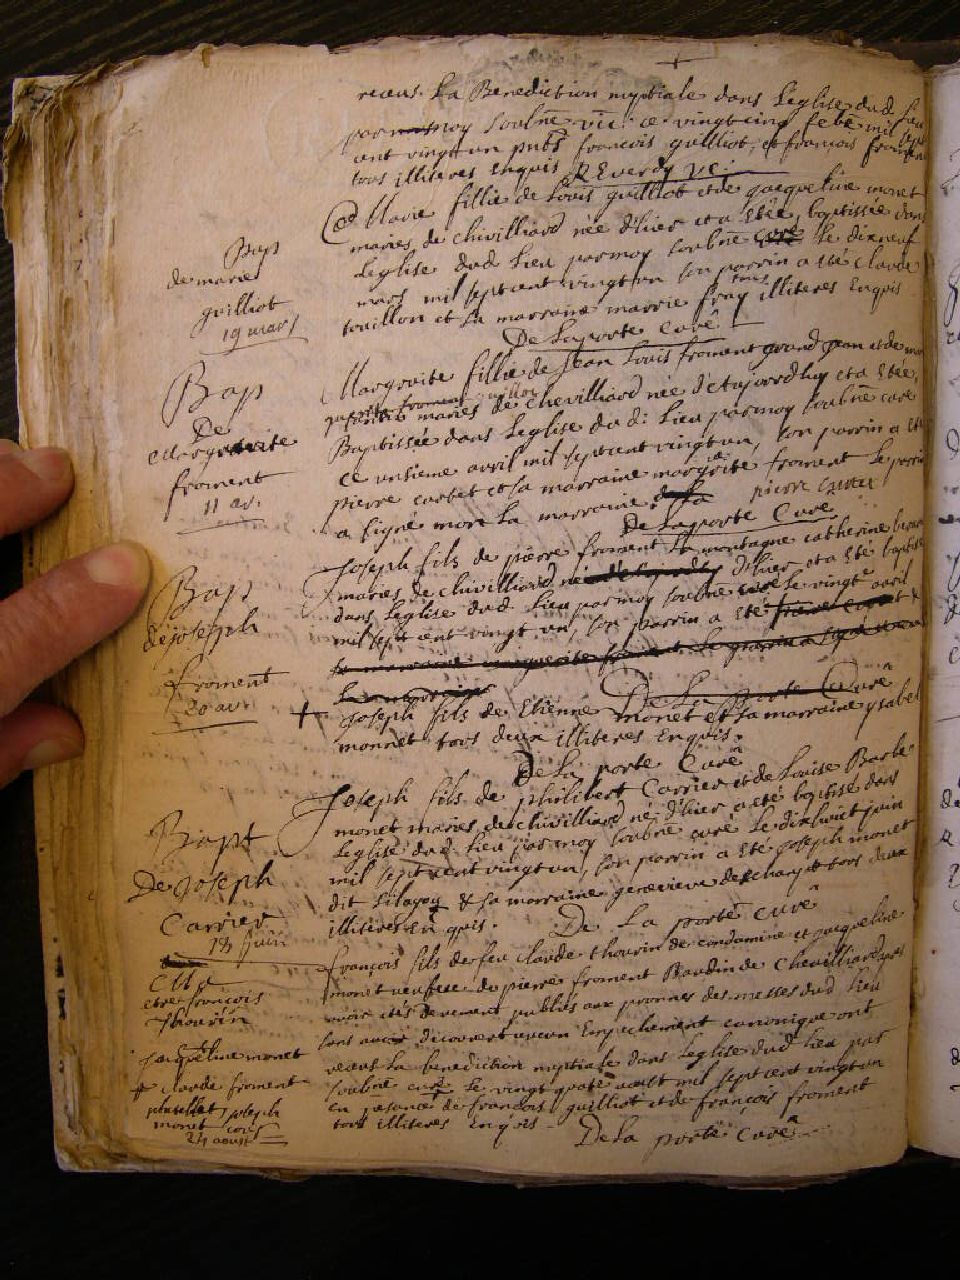 receus La Benediction nuptiale dans Leglise dud Lieu
par moy soubne vic: ce vingt cinq feb: mil sept
cent vingt un pnts françois guilliot, et françois froment
tous illiteres Enquis REverdy vic:
Bap
de marie
guilliot
19 mars
Marie fillie de Louis guilliot et de jacqueline monet
maries de chivilliard née d'hier et a Etée baptissée dans
Leglise dud Lieu par moy soubne curé Le dixneuf
mars mil sept cent vingt un son parrin a eté claude
touillon et La marraine marrie tous illiteres Enquis
De Laporte Curé
Bap
De
Margverite
froment
11 av.
Margverite fillie de Jean Louis froment grand jean et de
guillot maries de chevilliard née d'Aujourdhuy et a Etée
Baptissée dans Leglise du d: Lieu par moy soubne curé
ce unsieme avril mil sept cent vingt un, son parrin a eté
pierre carbet et sa marraine margverite froment Le parrin
a signé non La marraine. pierre
De Laporte Curé
Bap
de joseph
froment
20 av.
Joseph fils de pierre froment montagne catherine
maries de chivilliard né d'hier et a Eté baptisé
dans Leglise dud Lieu par moy soubne curé Le vingt avril
mil sept cent vingt un, son parrin a eté
De La porte Curé
+ Joseph fils de Etienne monet et sa marraine ysabel
monnet tous deux illiteres Enquis.
De La porte Curé
Bapt
De Joseph
Carrier
18 juin
Joseph fils de philibert Carrier et de Louise Barbe
monet maries de chivilliard né d'hier a eté baptisé dans
Leglise dud Lieu par moy soubne curé Le dixhuict juin
mil sept cent vingt un, son parrin a Eté Joseph monet
dit & sa marraine genevieve tous deux
illiteres en quis. De La porte curé
etre françois
Thourin
jacqueline monet
claude froment
joseph
monet
24 aoust
françois fils de feu claude thourin de condamine et jacqueline
monet veufve de pierre froment Baudin de Chevilliard apres
avoir étés devement publiés aux prosnes des messes dud Lieu
sans avoir decouvert aucun Empechement canonique ont
receus La benediction nuptiale dans Leglise dud Lieu par
soubne curé Le vingt quate aoust mil sept cent vingt un
en presance de françois guilliot et de françois froment
tous illiteres Enquis
De La porte Curé